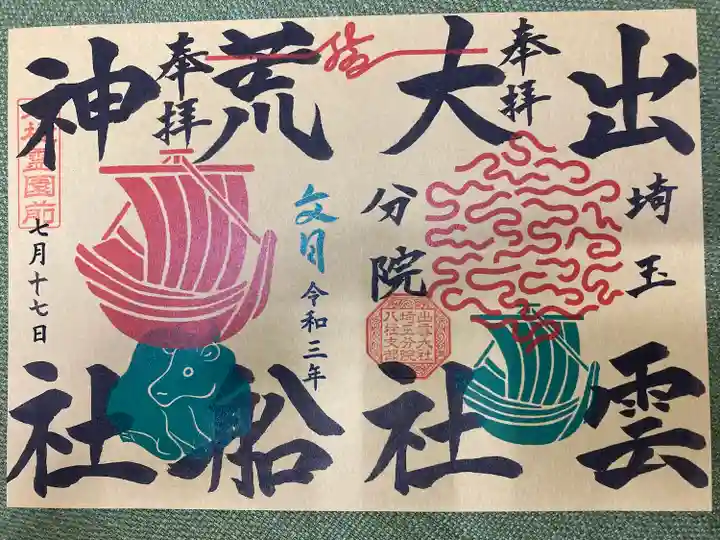 出雲
埼玉
奉拝
大社
分院
出雲大社
埼玉分院
八柱支部
奉拝
荒船
文月
令和三年
神社
七月十七日